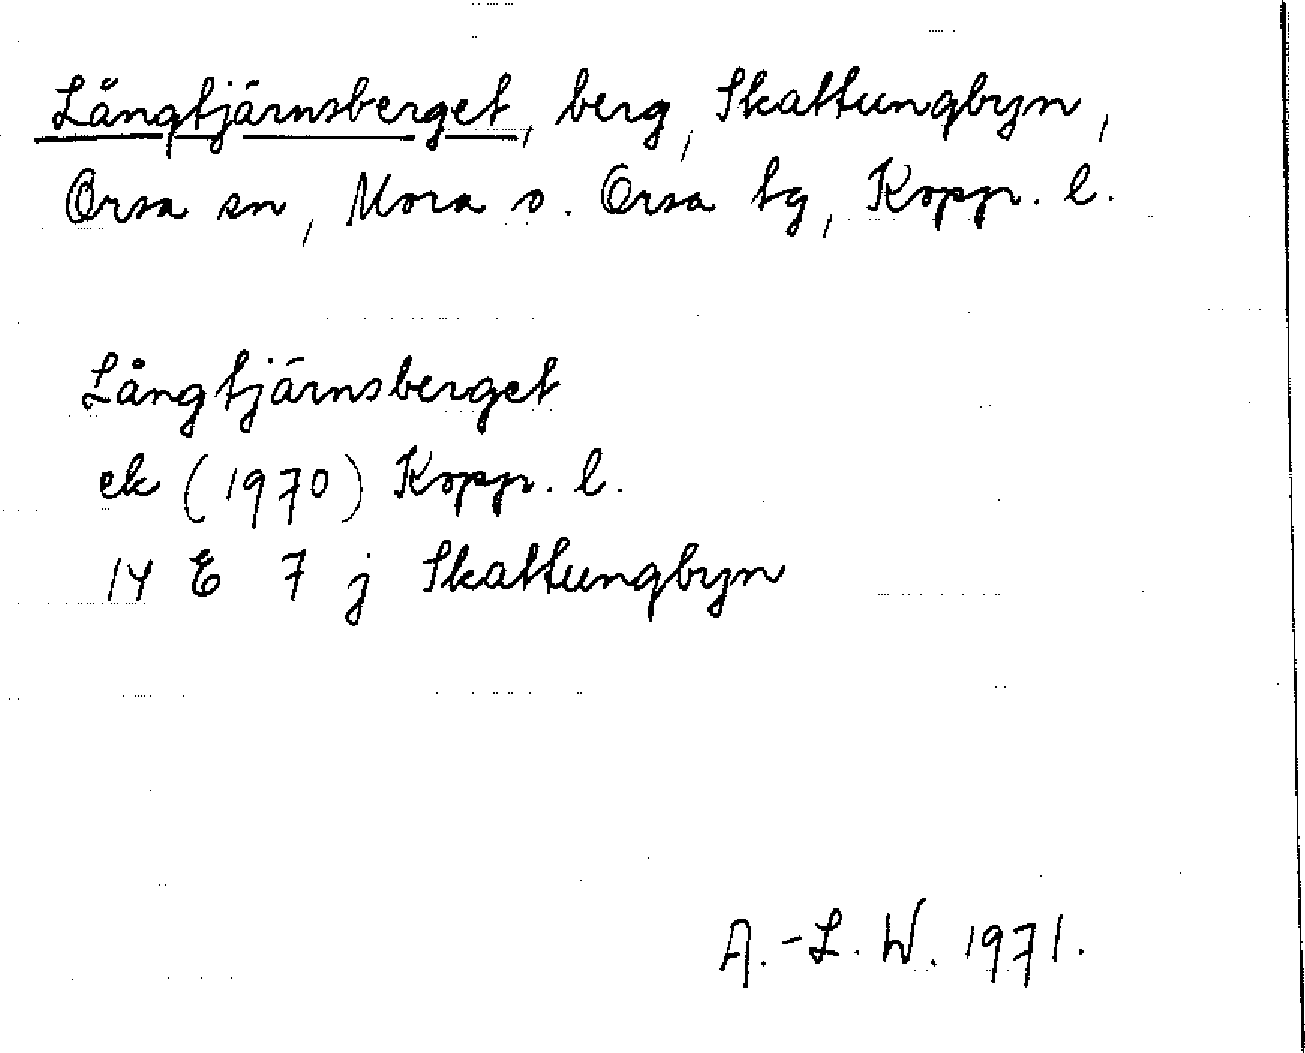 Långtjärnsberget, berg, Skattungbyn,
Orsa sn, Mora o. Orsa tg, Kopp. l.
Långtjärnsberget
ek (1970) Kopp. l.
14 E 7 j Skattungbyn
A.-L. W. 1971.